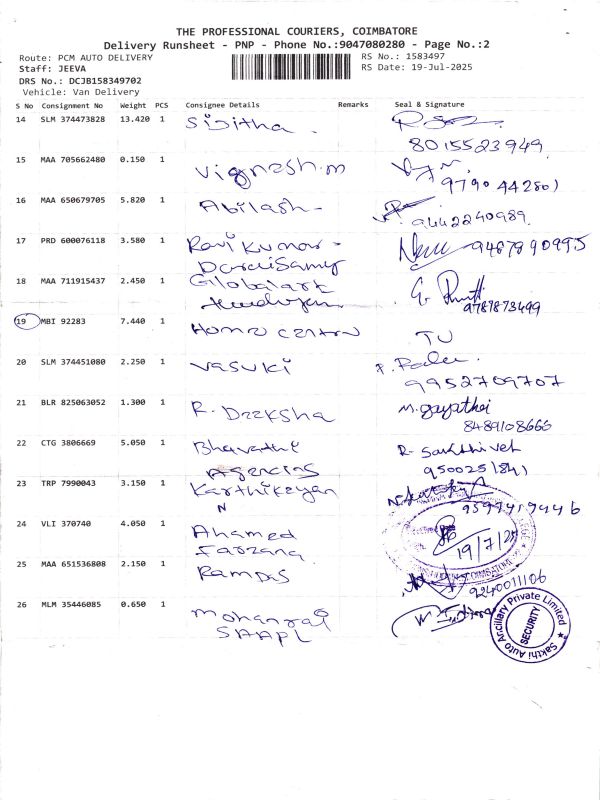 THE PROFESSIONAL COURIERS, COIMBATORE
Delivery Runsheet - PNP - Phone No.:9047080280 - Page No.:2
Route: PCM AUTO DELIVERY RS No.: 1583497
Staff: JEEVA RS Date: 19-Jul-2025
DRS No.: DCJB158349702
Vehicle: Van Delivery
S No Consignment No Weight PCS Consignee Details Remarks Seal & Signature
14 SLM 374473828 13.420 1
8015523949
15 MAA 705662480 0.150 1 Vignesh.m
9790442801
16 MAA 650679705 5.820 1 Abilash
9442240989
17 PRD 600076118 3.580 1 Ravi Kumar 9487890995
18 MAA 711915437 2.450 1 Globalart
9789873499
19 MBI 92283 7.440 1 Home centre
20 SLM 374451080 2.250 1 Vasuki
9952709707
21 BLR 825063052 1.300 1 R. Deeksha M. gayathri
8489108666
22 CTG 3806669 5.050 1 R. Sakthivel
Agencies
23 TRP 7990043 3.150 1 Karthikeyan
N
24 VLI 370740 4.050 1 Ahamed
Farzana 19/7/25
25 MAA 651536808 2.150 1 9240011106
26 MLM 35446085 0.650 1 Mohanraj
SAAPL
Sakthi Auto Ancillary Private Limited
SECURITY